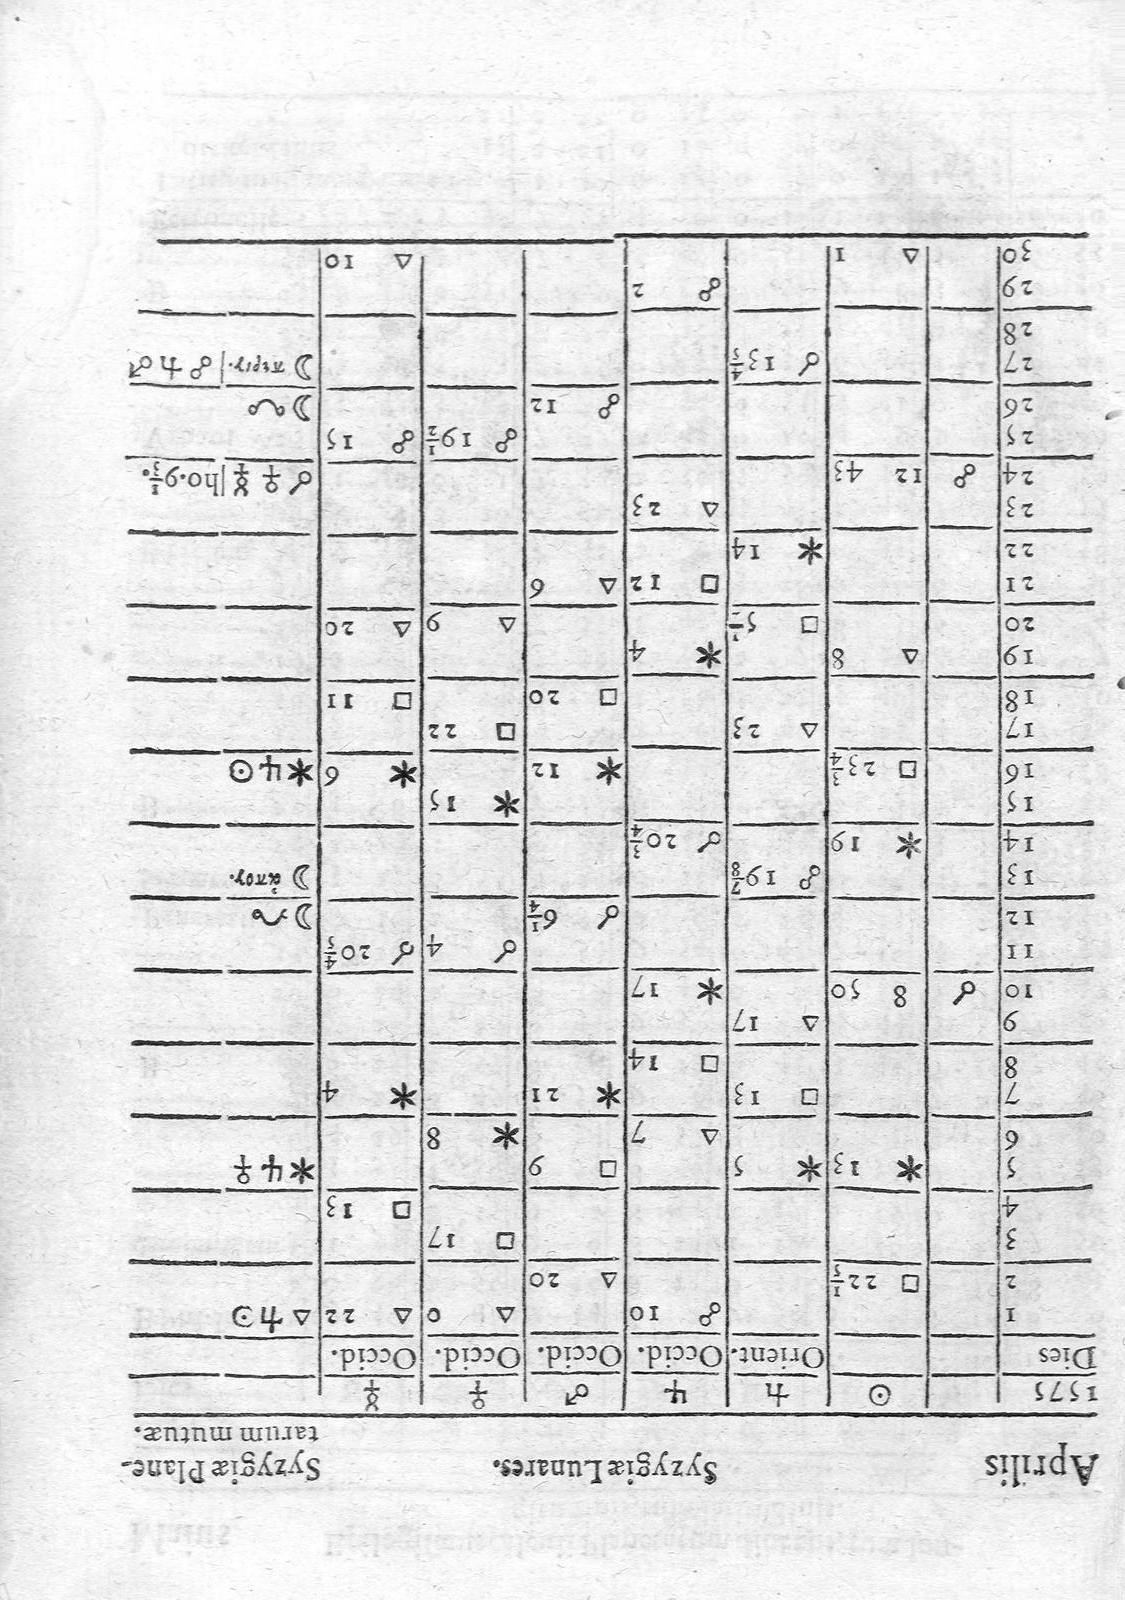 Aprilis Syzygiæ Lunares. Syzygiæ Plane-
tarum mutuæ.
1575 ☉ ♄ ♃ ♂ ♀ ☿
Dies Orient. Occid. Occid. Occid. Occid.
1 ☍ 10 △ 0 △ 22 △ ♄ ☉
2 □ 22 1/5 △ 20
3 □ 17
4 □ 13
5 ✶ 13 ✶ 5 □ 9 ✶ ♃ ♀
6 △ 7 ✶ 8
7 □ 13 ✶ 21 ✶ 4
8 □ 14
9 △ 17
10 ☌ 8 50 ✶ 17
11 ☌ 4 ☌ 20 4/5
12 ☌ 6 1/4 ☽
13 ☍ 19 7/8 ☽ ἀπογ.
14 ✶ 19 ☌ 20 3/4
15 ✶ 15
16 □ 23 3/4 ✶ 12 ✶ 6 ✶ ♃ ☉
17 △ 23 □ 22
18 □ 20 □ 11
19 △ 8 ✶ 4
20 □ 5 1/2 △ 9 △ 20
21 □ 12 △ 6
22 ✶ 14
23 △ 23
24 ☍ 12 43 ☌ ♀ ☿ ho.9 1/3.
25 ☍ 19 1/2 ☍ 15
26 ☍ 12 ☽
27 ☌ 13 4/5 ☽ περιγ. ☍ ♄ ♂
28
29 ☍ 2
30 △ 1 △ 10